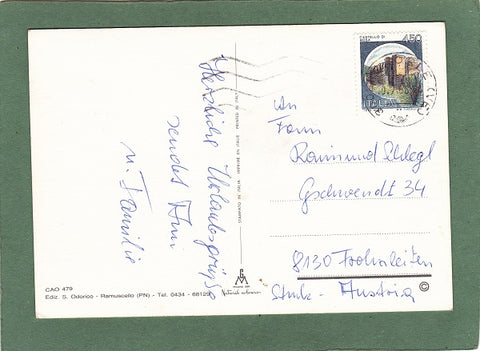 Herzliche Urlaubsgrüße
sendet
u. Familie
CAO 479
Ediz. S. Odorico - Ramuscello (PN) - Tel. 0434 - 68129
CASTELLO DI
450
ITALIA
An
Fam
Raimund
Gschwendt 34
8130 Frohnleiten
Stmk - Austria ©